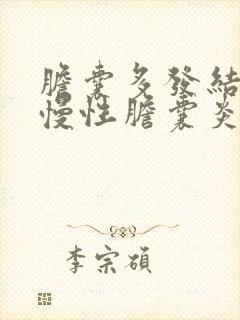 膽囊多發結
慢性膽囊炎
李宗碩